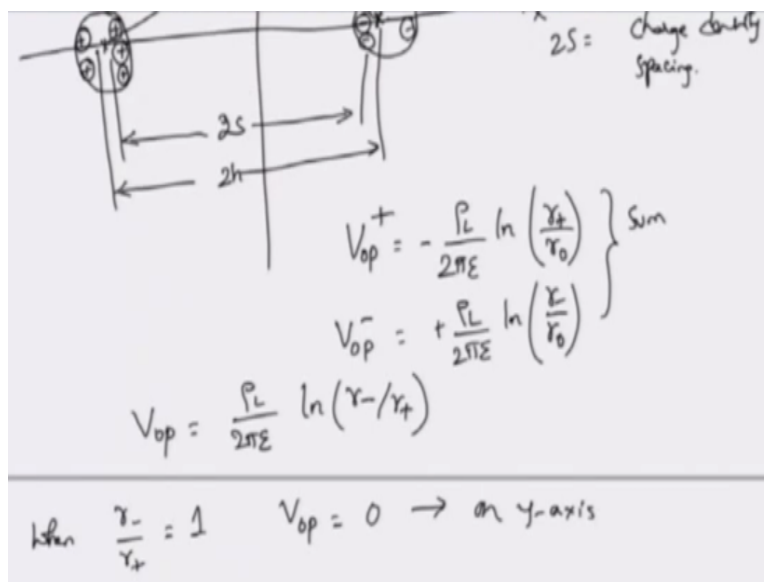 2S = Charge density
spacing.
2s
2h
V_op^+ = - ρ_L/2πε ln(r_+/r_0) } Sum
V_op^- = + ρ_L/2πε ln(r_-/r_0)
V_op = ρ_L/2πε ln(r_-/r_+)
When r_-/r_+ = 1 V_op = 0 → on y-axis